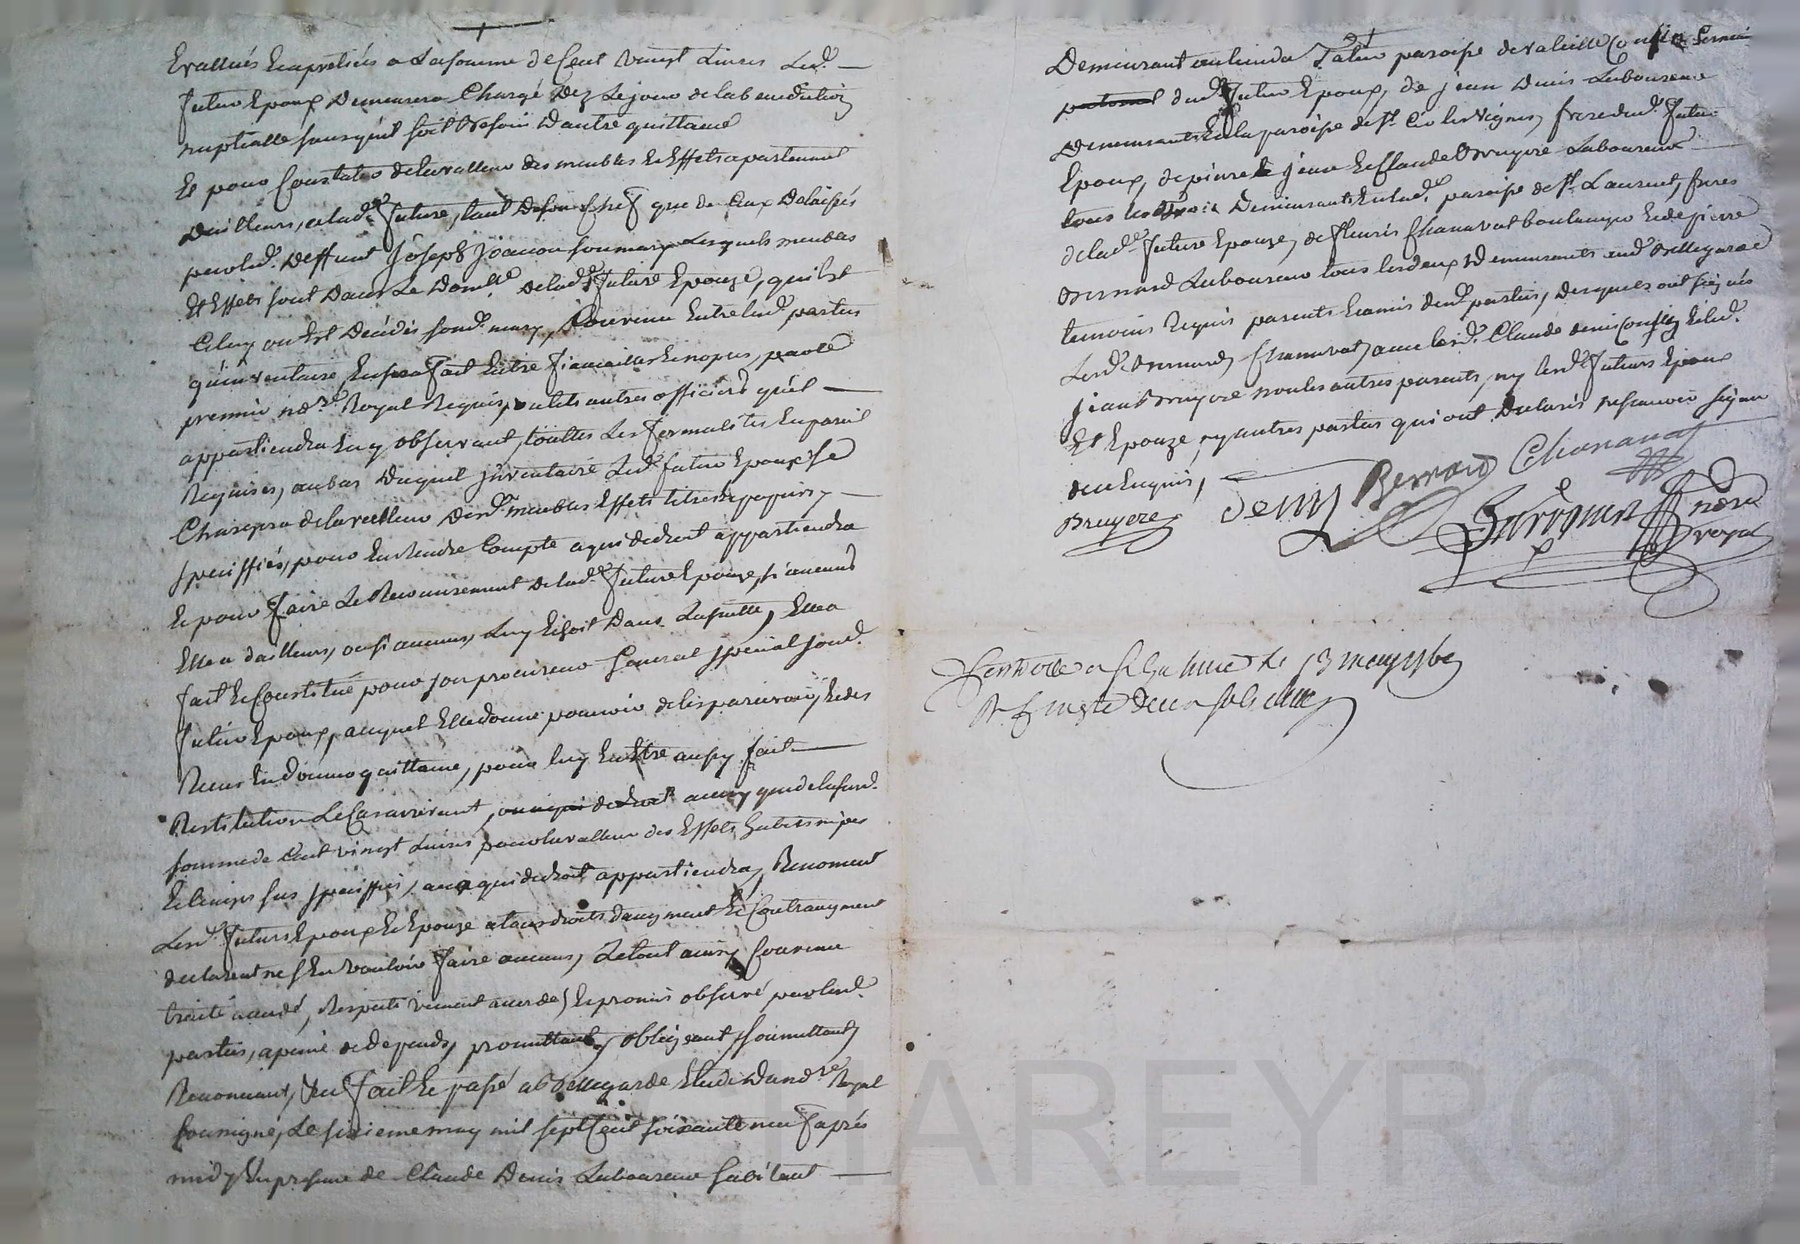 Evallués Et apretiés a La somme de Cent vingt Livres Led.
futur Epoux Demeurera Chargé Dez Le jour de la benediction
nuptialle sans quil soit besoin dautre quittance
Et pour Constater de la valleur des meubles Et Effets apartenant
D'ailleurs, a lad.e future, tant de son chef que de Ceux Delaissés
par led. Deffunt Joseph son mary Lesquels meubles
Et Effets sont Dans Le Domlle De lad.e future Epouze, quil Est
Celuy ou Est Décédé sond. mary, Convenu Entre Led. parties
qu'inventaire En sera fait Entre fiancailles Et nopces, par le
premier no.re Royal Requis, ou tels autres officiers quil
appartiendra En y observant, touttes Les formalités En pareil
Requises, au bas Duquel jnventaire Led. futur Epoux Se
Chargera de la valleur Desd. meubles Effets titres Et papiers
specifiés, pour En Rendre Compte a qui de droit appartiendra
Et pour faire Le Recouvrement De lad.e future Epouze, si aucuns
Elle a dailleurs, ou si aucuns, Luy Echoit Dans La suitte, Elle a
fait Et Constitué pour son procureur General special Sond.
futur Epoux, auquel Elle donne pouvoir de les parcevoir, Et des
Recus En Donner quittance, pour luy En Etre aussy fait
Restitution Le Cas arrivant, ainsy que de la susd.
somme de Cent vingt Livres pour la valleur des Effets habits nipes
Et linges sus specifiés, a qui de droit appartiendra, Renoncent
Lesd. futurs Epoux Et Epouze a tous droits daugment Et Contraugment
declarent ne S'En vouloir faire aucuns, Le tout ainsy Convenu
traité accordé, Respectivement accordé, Et promis observé par lesd.
parties, a peine de depends, promettant, obligeant, Soumettant,
Renoncant, fait Et passé a Bellegarde Etude Du nd.re Royal
soussigné, Le sixieme may mil sept Cent soixante neuf aprés
midy En presence de Claude Denis Laboureur habitant
Demeurant au lieu de paroisse de valeille Cousin Germain
paternel dud. futur Epoux, de jean Denis Laboureur
Demeurant En la paroisse de St. Cir les Vignes, frere dud. futur
Epoux, de pierre jean Et Claude Bruyere Laboureurs
tous les trois Demeurants En lad. paroisse de St. Laurent, freres
de lad.e future Epouze, de fleuris Chanavat boulanger Et de pierre
Bernard Laboureur tous les deux Demeurants aud. Bellegarde
temoins Requis parents Et amis desd. parties, desquels ont signés
Lesd. Bernard, Chanavat, avec lesd. Claude denis Cousin Et led.
jean Bruyere non les autres parents, ny lesd. futurs Epoux
Et Epouze, ny autres parties qui ont Declarés ne scavoir signer
de ce Enquis,
Bruyere Denis Bernard Chanavat
nore
royal
Controllé a St. Galmier Le 13 may 1769